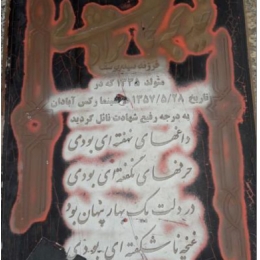 فرزند
متولد ۱۳۳۵ که در
تاریخ ۱۳۵۷/۵/۲۸ سینما رکس آبادان
به درجه رفیع شهادت نائل گردید
داغهای نهفته ای بودی
حرفهای نگفته ای بودی
در دلت یک بهار پنهان بود
غنچه ناشکفته ای بودی